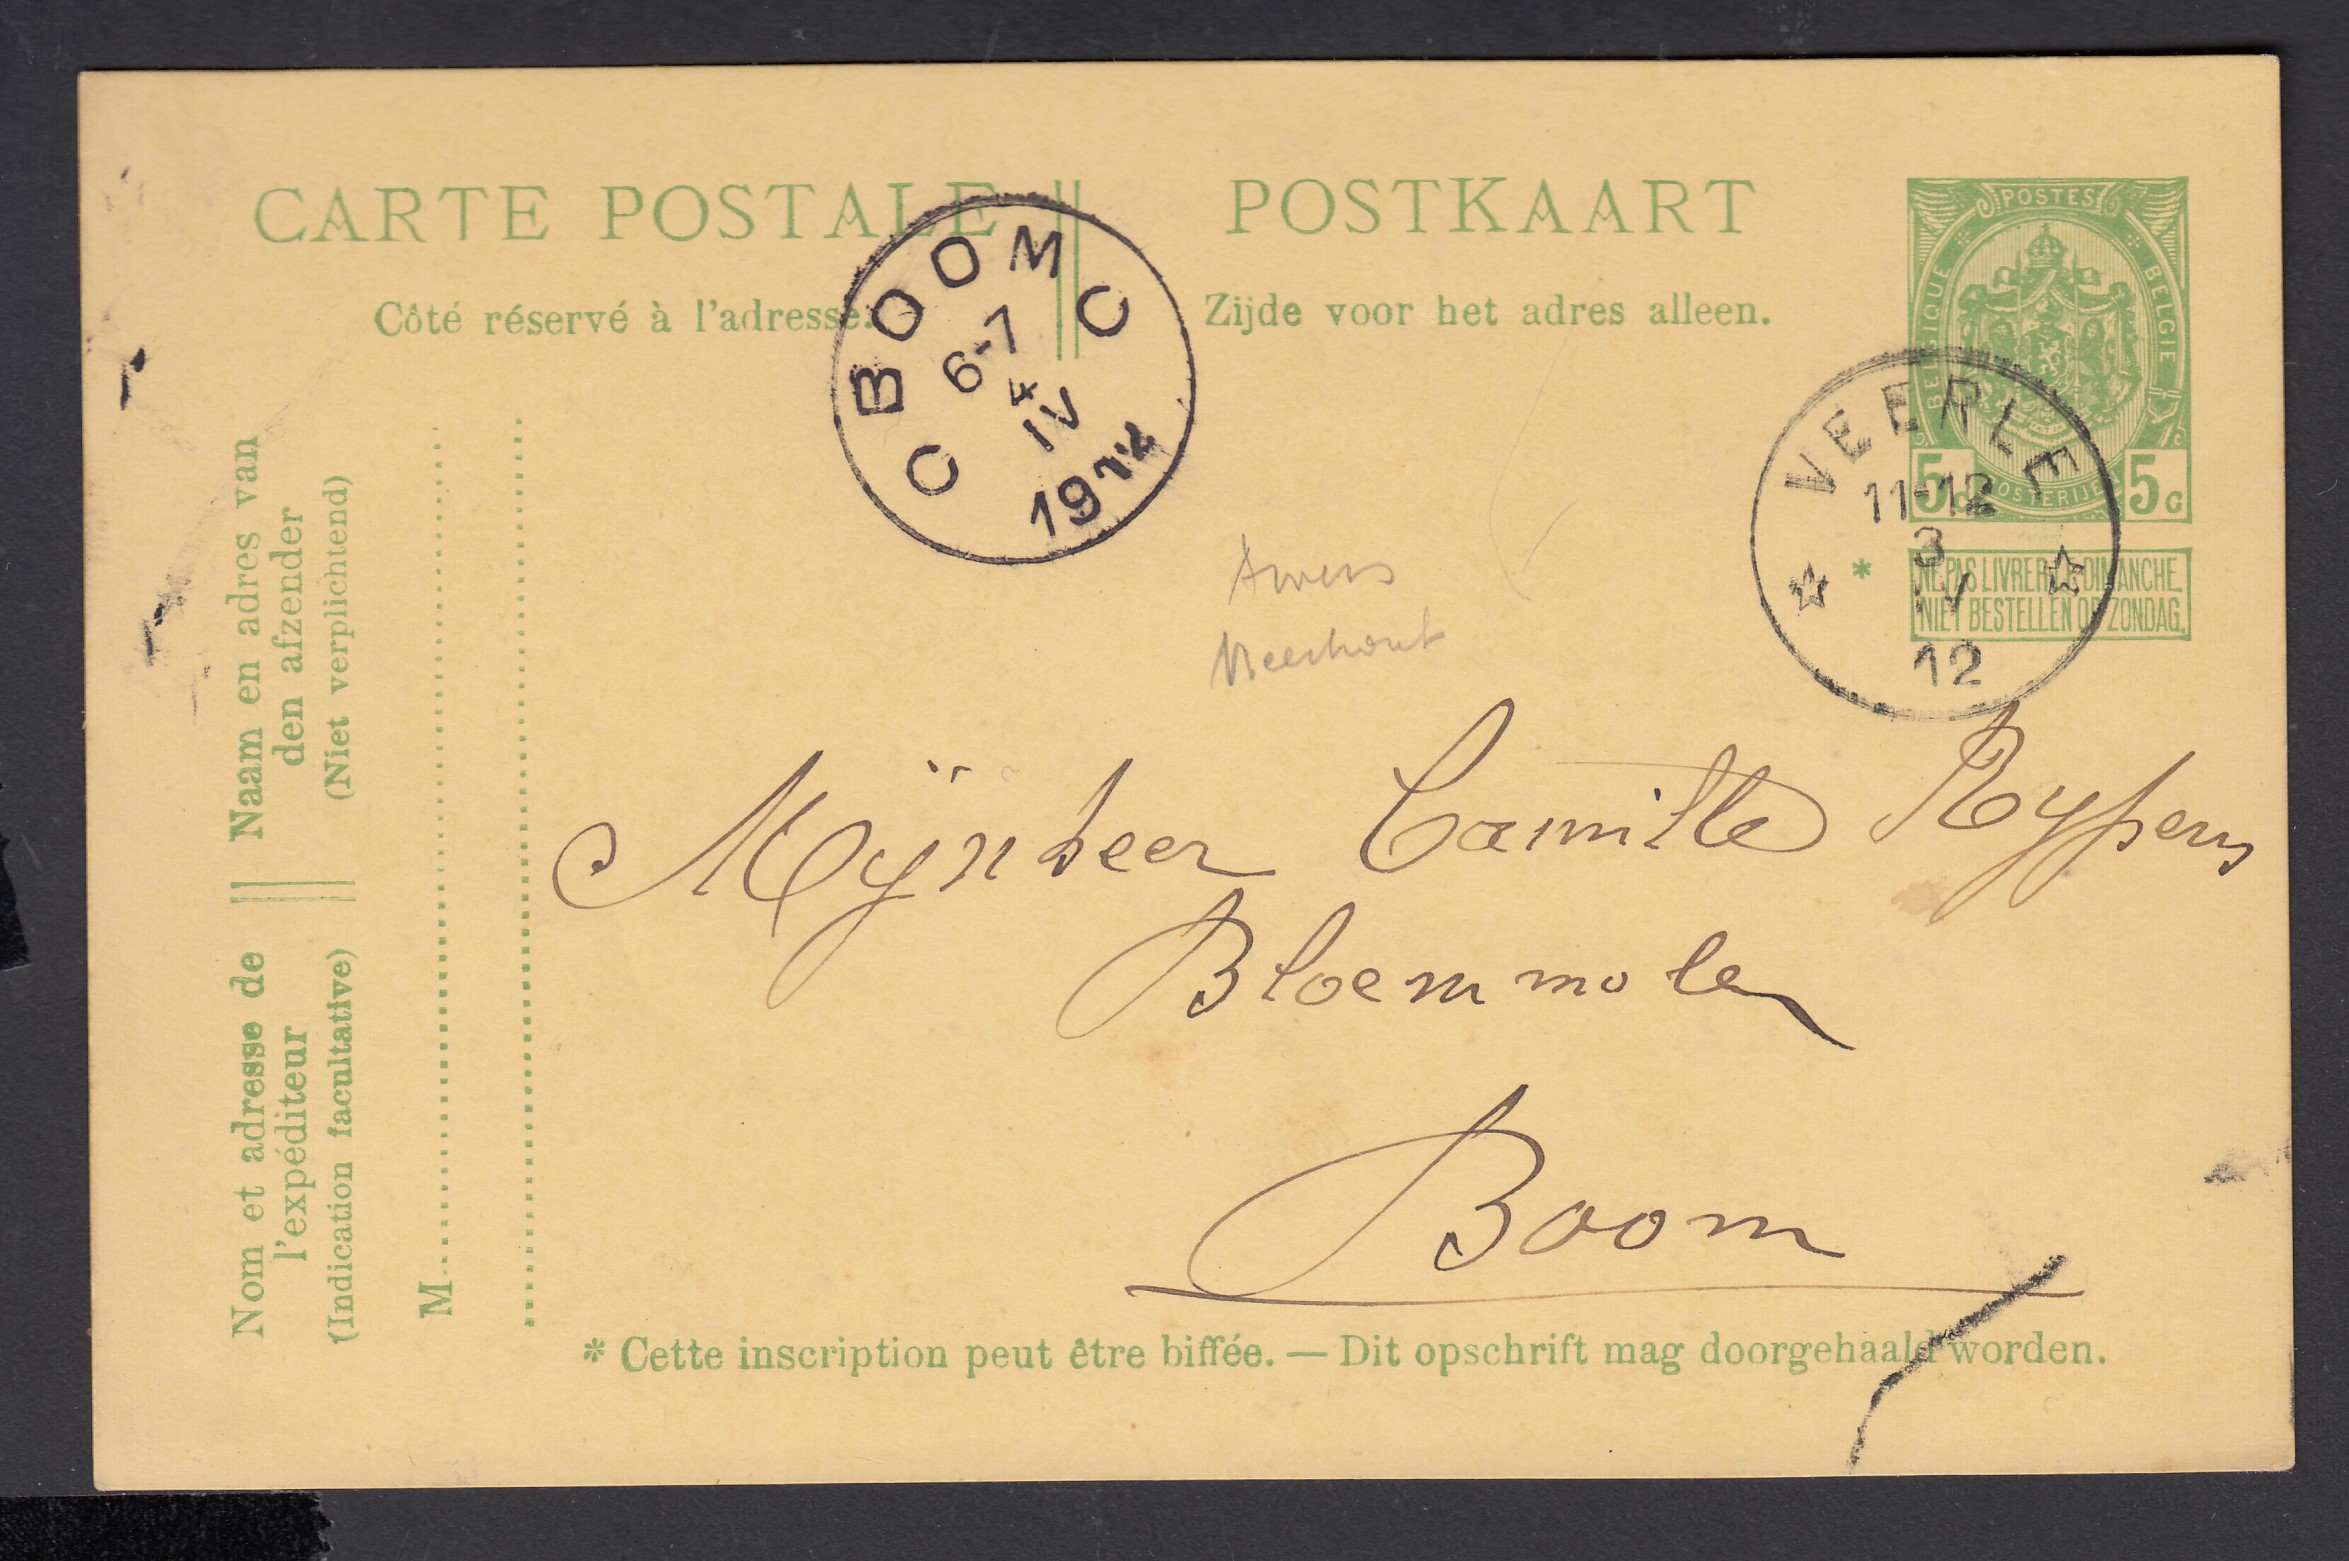 CARTE POSTALE
POSTKAART
Côté réservé à l'adresse.
Zijde voor het adres alleen.
POSTES
BELGIQUE
BELGIE
POSTERIJEN
5c
5c
NE PAS LIVRER LE DIMANCHE.
NIET BESTELLEN OP ZONDAG.
*
C BOOM C
6-7
4
IV
1912
VEERLE
11-12
3
IV
12
Mÿnheer Camille Rypens
Bloemmolen
Boom
* Cette inscription peut être biffée. — Dit opschrift mag doorgehaald worden.
Naam en adres van
den afzender
(Niet verplichtend)
Nom et adresse de
l'expéditeur
(Indication facultative)
M